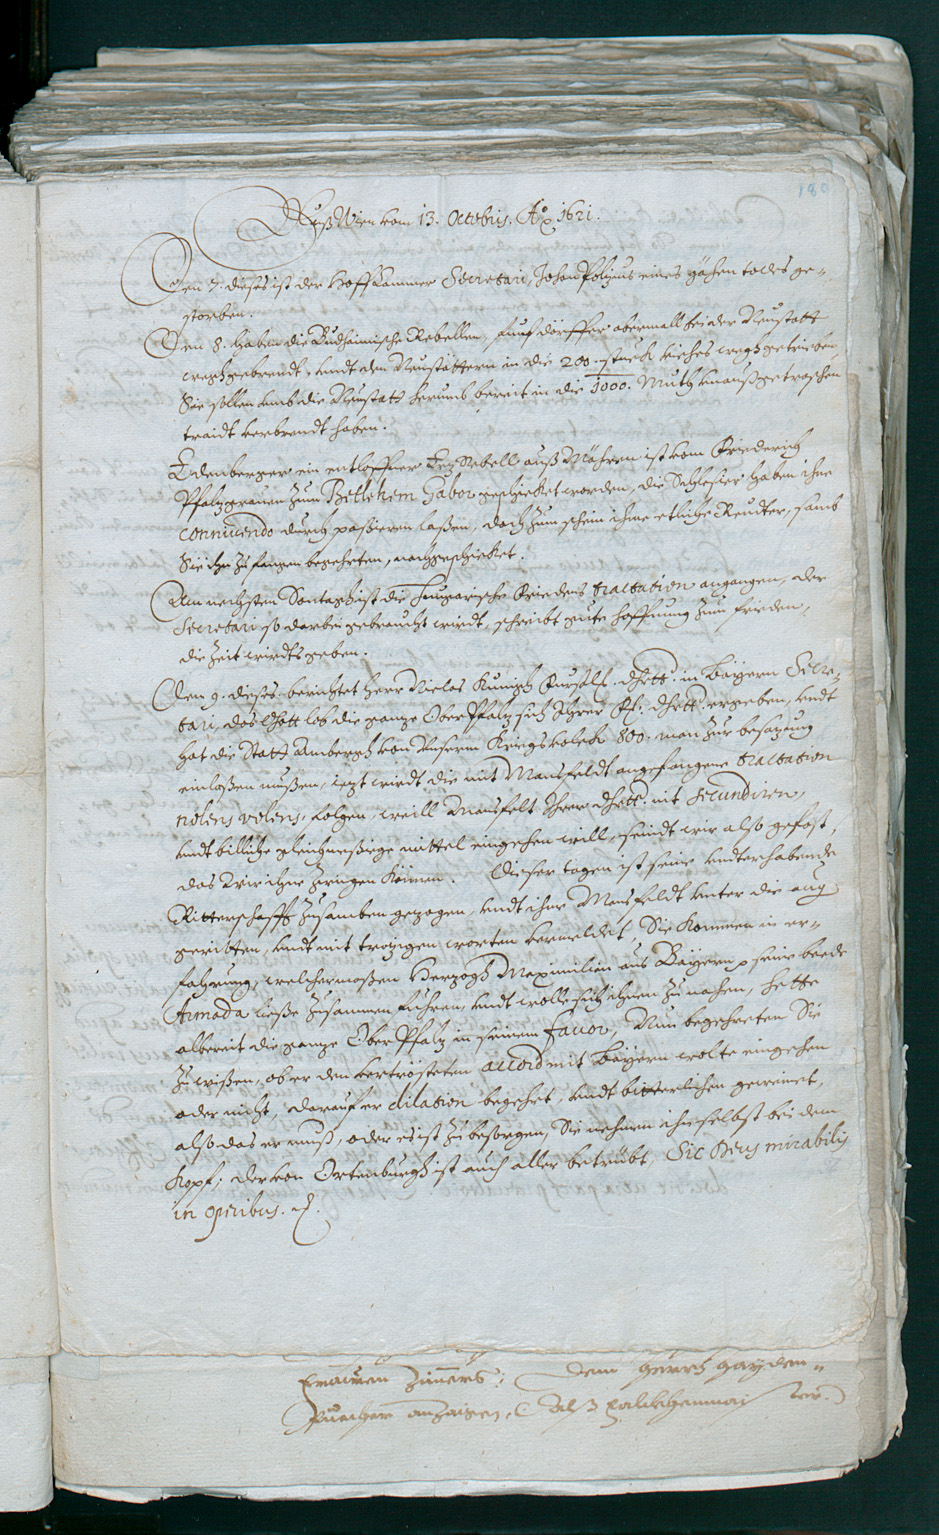 180
Auß Wien vom 13. Octobris. Aõ 1621.
Den 7. dieses ist der Hoff Cammer Secretari, Johan Polzius eines gähen todes ge-
storben.
Den 8. haben die Budhainische Rebellen, fünf dörffer abermall bei der Neustatt
wegh gebrendt, vndt den Neustättern in die 200. stuck viehes wegh getrieben,
Sie sollen vmb die Neustatt herumb bereit in die 1000. Muth vnaußgetroschen
traidt verbrendt haben.
ein entloffner Ertz Rebell auß Mähren ist vom Friederich
Pfalzgrauen zum Bethlehem Gabor geschicket worden, die Schlesier haben ihne
conniuendo durch paßieren laßen, doch zum schein ihme etliche Reudter, samb
Sie ihn zu fangen begehrten, nachgeschicket.
Am nechsten Sontagh ist die Hungarische Friedens tractation angangen, der
Secretari so darbei gebraucht wirdt, schreibt gute hoffnung zum frieden,
die Zeit wirdts geben.
Den 9. dieses berichtet Herr Niclas Kunigh Churfl. dhtt: in Bäyern Secre-
tari, das Gott lob die ganze Ober Pfalz sich Ihrer Kf: dhtt: ergeben, vndt
hat die Statt Ambergh von Vnserm Kriegsvolck 800. man zur besazung
einlaßen müßen, iezt wirdt die mit Mansfeldt angefangene tractation
nolens volens, volgen, will Mansfelt Ihrer dhtt: nit secundiren,
vndt billiche gleichmeßige mittel eingehen will, seindt wir also gefast,
das Wir ihne zwingen können. Dieser tagen ist seine vnterhabende
Ritterschafft zusamben gezogen, vndt ihme Mansfeldt vnter die aug
geritten, vndt mit trozigen worten vermeldet, Sie kommen in er-
fahrung, welchermaßen Herzogh Maximilian aus Bäyern seine beede
Armada ließe zusammen führen, vndt wolle sich ihnen zu nahen, hette
albereit die ganze Ober Pfalz in seinem fauor, Nun begehreten Sie
zu wißen, ob er den vertrösteten accord mit Bäyern wolte eingehen
oder nicht, darauf er dilation begehrt, vndt bitterlichen geweinet,
also das er muß, oder es ist zu besorgen, Sie nehmen ihn selbst bei dem
Kopf; der von Ortenburgh ist auch aller betrübt, Sic Deus mirabilis
in operibus.
dem Herrn
anzaigen,